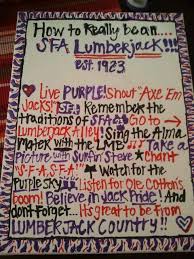 How to Really be an....
SFA LumberJack!!!
est. 1923.
Live PURPLE! Shout "Axe Em
Jacks!" SFA Remember the
traditions of SFA Go to →
Lumberjack Alley! Sing the Alma
Mater with the LMB Take a
Picture with Surfin Steve ★ chant
"S-F-A, SFA!" Watch for the
Purple Sky Listen for Ole Cotton's
boom! Believe in Jack Pride! And
don't Forget... Its great to be from
LUMBERJACK COUNTRY!!